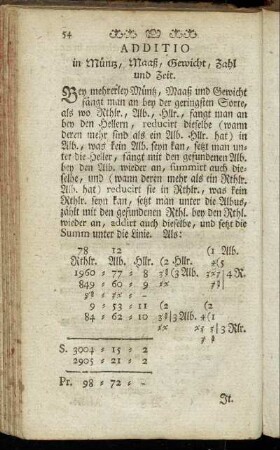 54
ADDITIO
in Müntz, Maaß, Gewicht, Zahl
und Zeit.
Bey mehrerley Müntz, Maaß und Gewicht
fängt man an bey der geringsten Sorte,
als wo Rthlr., Alb., Hllr., fangt man an
bey den Hellern, reducirt dieselbe (wann
deren mehr sind als ein Alb. Hllr. hat) in
Alb., was kein Alb. seyn kan, setzt man un-
ter die Heller, fängt mit den gefundenen Alb.
bey den Alb. wieder an, summirt auch die-
selbe, und (wann deren mehr als ein Rthlr.
Alb. hat) reducirt sie in Rthlr., was kein
Rthlr. seyn kan, setzt man unter die Albus,
zählt mit den gefundenen Rthl. bey den Rthl.
wieder an, addirt auch dieselbe, und setzt die
Summ unter die Linie. Als:
78 12 (1 Alb.
Rthlr. Alb. Hllr. (2 Hllr.
1960 = 77 = 8 (3 Alb. 4 R.
849 = 60 = 9
9 = 53 = 11 (2 (2
84 = 62 = 10 3 Alb. (1
3 Rlr.
S. 3004 = 15 = 2
2905 = 21 = 2
Pr. 98 = 72 = -
It.